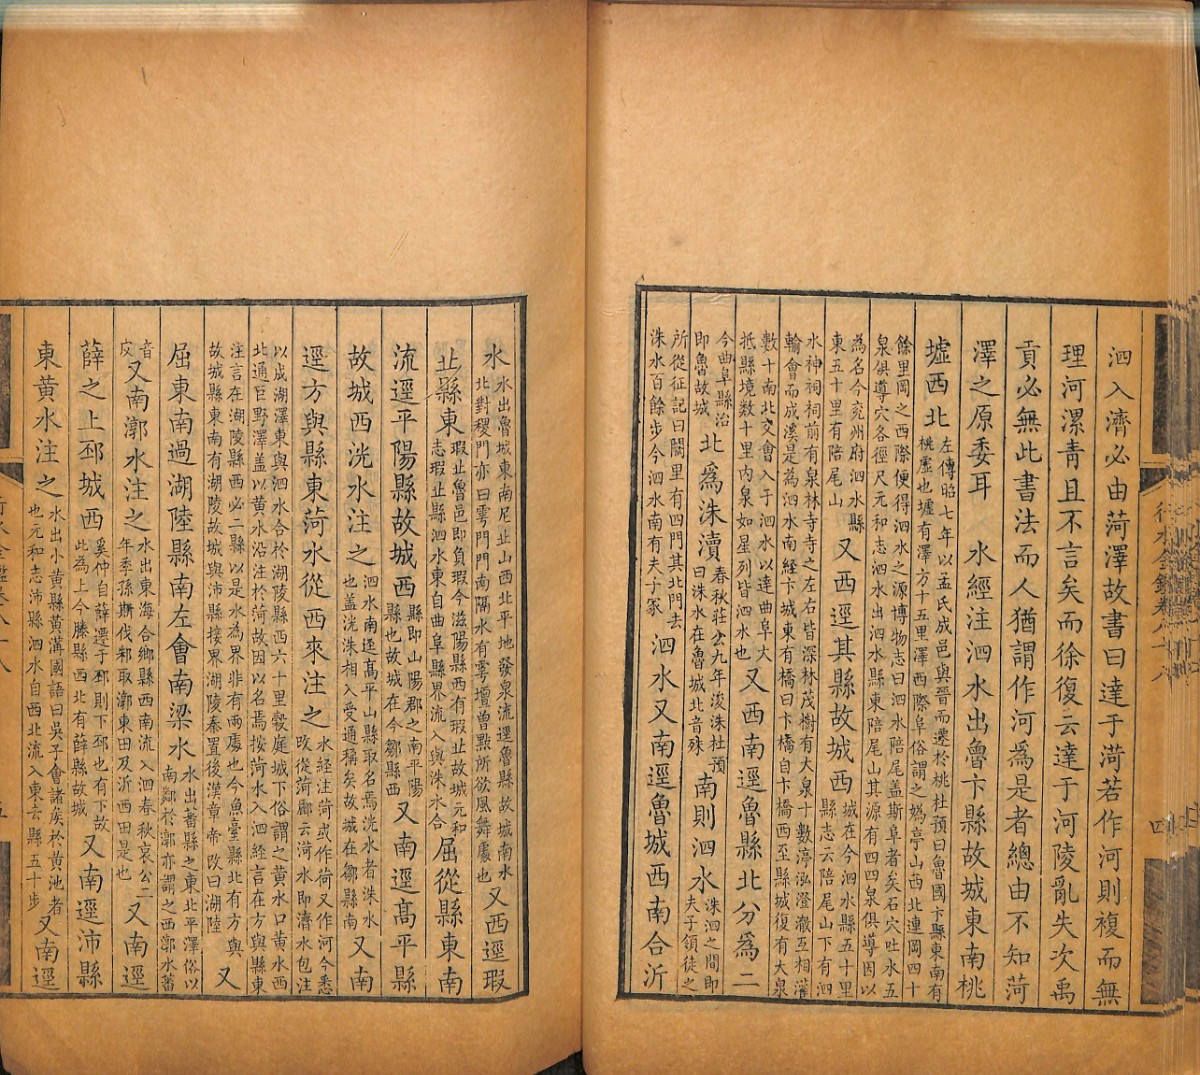 泗入濟必由菏澤故書曰達于菏若作河則複而無
理河漯青且不言矣而徐復云達于河陵亂失次禹
貢必無此書法而人猶謂作河爲是者總由不知菏
澤之原委耳　水經注泗水出魯卞縣故城東南桃
墟西北
左傳昭七年以孟氏成邑與晉而遷於桃杜預曰魯國卞縣東南有
桃虛也墟有澤方十五里澤西際阜俗謂之嬀亭山西北連岡四十
餘里岡之西際便得泗水之源博物志曰泗水陪尾盖斯阜者矣石穴吐水五
泉俱導穴各徑尺元和志泗水出泗水縣東陪尾山其源有四四泉俱導因以
為名今兖州府泗水縣
東五十里有陪尾山
又西逕其縣故城西
城在今泗水縣五十里
縣志云陪尾山下有泗
水神祠祠前有泉林寺寺之左右皆深林茂樹有大泉十數渟泓澄澈互相灌
輸會而成溪是為泗水南經卞城東有橋曰卞橋自卞橋西至縣城復有大泉
數十南北交會入于泗水以達曲阜大
抵縣境数十里内泉如星列皆泗水也
又西南逕魯縣北分爲二
今曲阜縣治
即魯故城
北爲洙瀆
春秋莊公九年浚洙杜預
曰洙水在魯城北音殊
南則泗水
洙泗之間即
夫子領徒之
所從征記曰闕里有四門其北門去
洙水百餘步今泗水南有夫子冢
泗水又南逕魯城西南合沂
行水金鑑卷八十八
四
水
水出魯城東南尼止山西北平地發泉流逕魯縣故城南水
北對稷門亦曰雩門門南隔水有雩壇曾點所欲風舞處也
又西逕瑕
止縣東
瑕止魯邑即負瑕今滋陽縣西有瑕止故城元和
志瑕止止縣泗水東自曲阜縣界流入與洙水合
屈從縣東南
流逕平陽縣故城西
縣即山陽郡之南平陽
縣也故城在今鄒縣西
又南逕高平縣
故城西洸水注之
泗水南逕高平山縣取名焉洸水者洙水
也盖洸洙相入受通稱矣故城在鄒縣南
又南
逕方與縣東菏水從西來注之
水經注菏或作荷又作河今悉
改從菏酈云菏水即濟水包注
以成湖澤東與泗水合於湖陵縣西六十里穀庭城下俗謂之黄水口黄水西
北通巨野澤盖以黄水沿注於菏故因以名焉按菏水入泗經言在方與縣東
注言在湖陵縣西必二縣以是水為界非有兩處也今魚臺縣北有方與
故城縣東南有湖陵故城與沛縣接界湖陵秦置後漢章帝改曰湖陸
又
屈東南過湖陸縣南左會南梁水
水出蕃縣之東北平澤俗以
南鄒於漷亦謂之西漷水蕃
音
皮
又南漷水注之
水出東海合鄉縣西南流入泗春秋哀公二
年季孫斯伐邾取漷東田及沂西田是也
又南逕
薛之上邳城西
奚仲自薛遷于邳則下邳也有下故
此為上今滕縣西北有薛縣故城
又南逕沛縣
東黄水注之
水出小黄縣黄溝國語曰吳子會諸矦於黄池者
也元和志沛縣泗水自西北流入東去縣五十步
又南逕